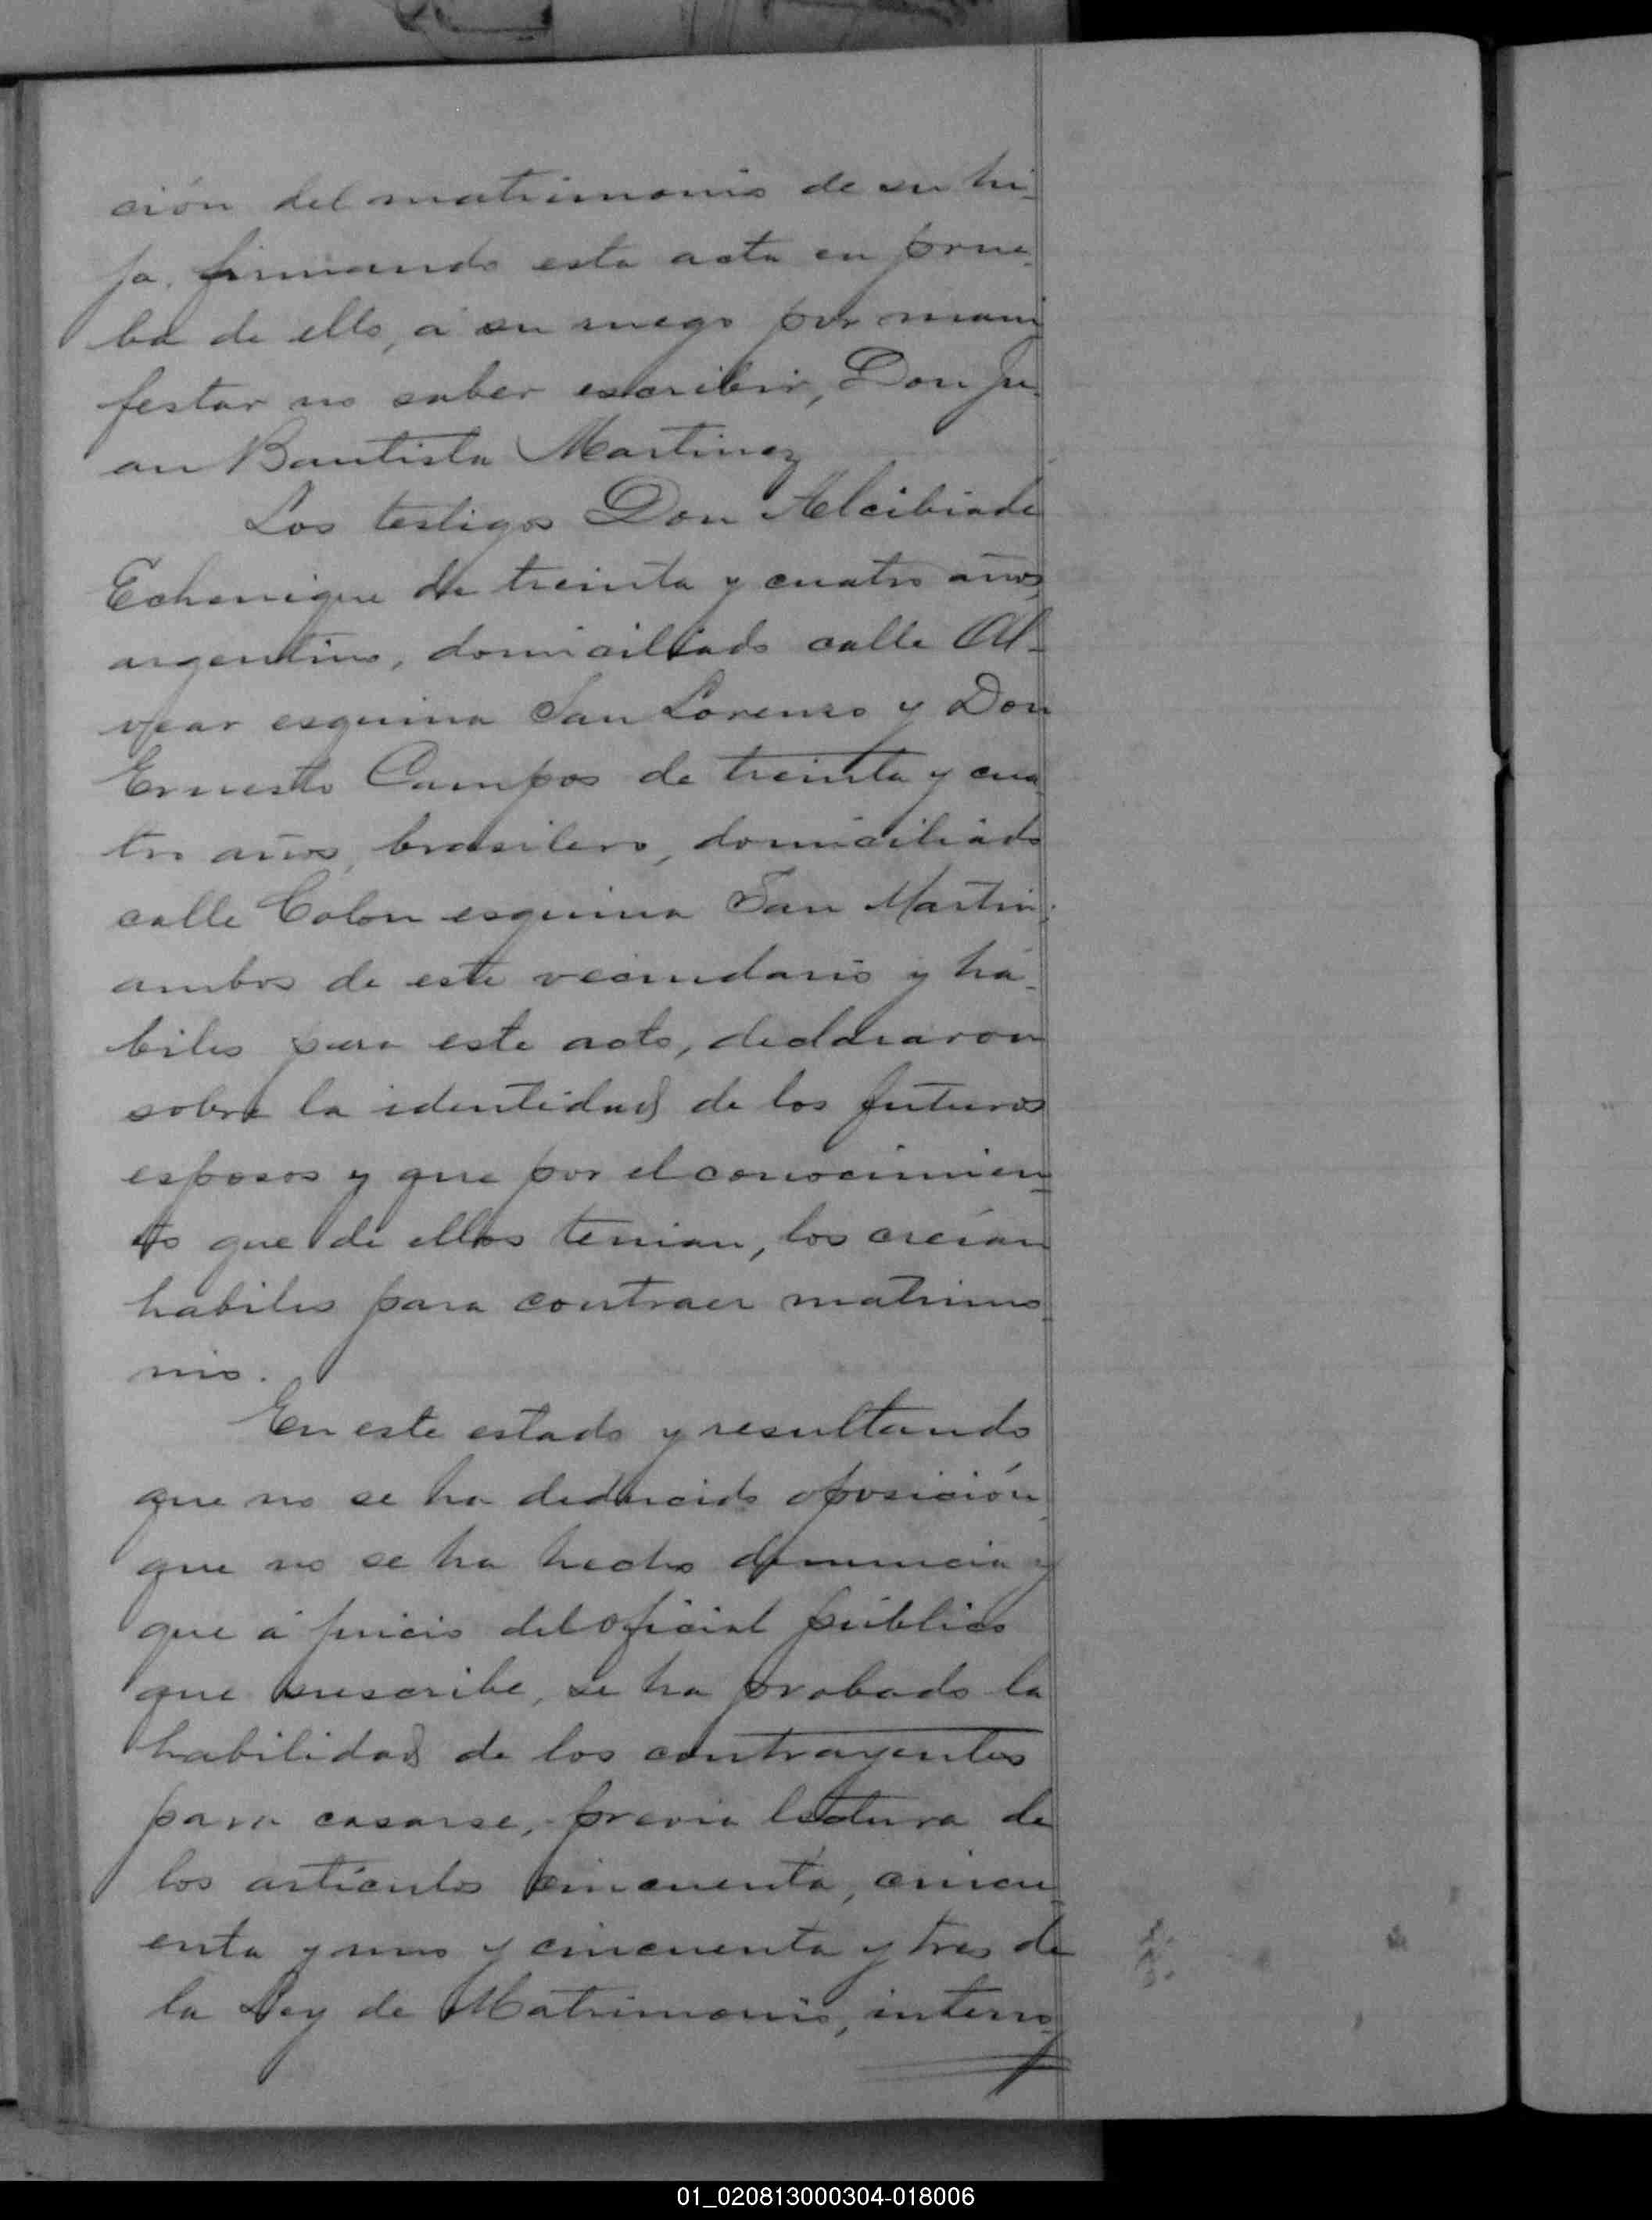 ción del matrimonio de su hi-
ja, firmando esta acta en prue-
ba de ello, á su ruego por mani-
festar no saber escribir, Don Ju-
an Bautista Martinez
Los testigos Don Alcibiade
Echenique de treinta y cuatro años,
argentino, domiciliado calle Al-
vear esquina San Lorenzo y Don
Ernesto Campos de treinta y cua-
tro años, brasilero, domiciliado
calle Colon esquina San Martin;
ambos de este vecindario y há-
biles para este acto, declararon
sobre la identidad de los futuros
esposos y que por el conocimien-
to que de ellos tenian, los creían
habiles para contraer matrimo-
nio.
En este estado y resultando
que no se ha deducido oposición,
que no se ha hecho denuncia y
que á juicio del oficial público
que suscribe, se ha probado la
habilidad de los contrayentes
para casarse, previa lectura de
los artículos cincuenta, cincu-
enta y uno y cincuenta y tres de
la Ley de Matrimonio, interro-
01_020813000304-018006